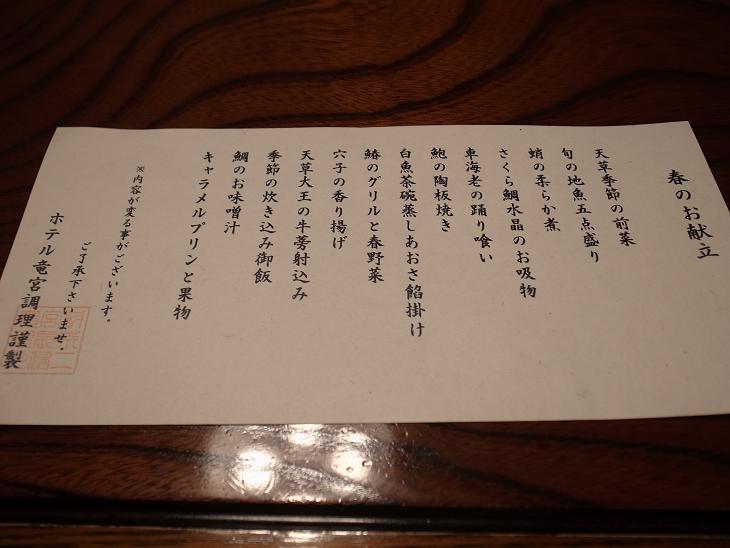 春のお献立
天草季節の前菜
旬の地魚五点盛り
蛸の柔らか煮
さくら鯛水晶のお吸物
車海老の踊り喰い
鮑の陶板焼き
白魚茶碗蒸しあおさ餡掛け
鰆のグリルと春野菜
穴子の香り揚げ
天草大王の牛蒡射込み
季節の炊き込み御飯
鯛のお味噌汁
キャラメルプリンと果物
※内容が変る事がございます。
ご了承下さいませ。
ホテル竜宮調理謹製